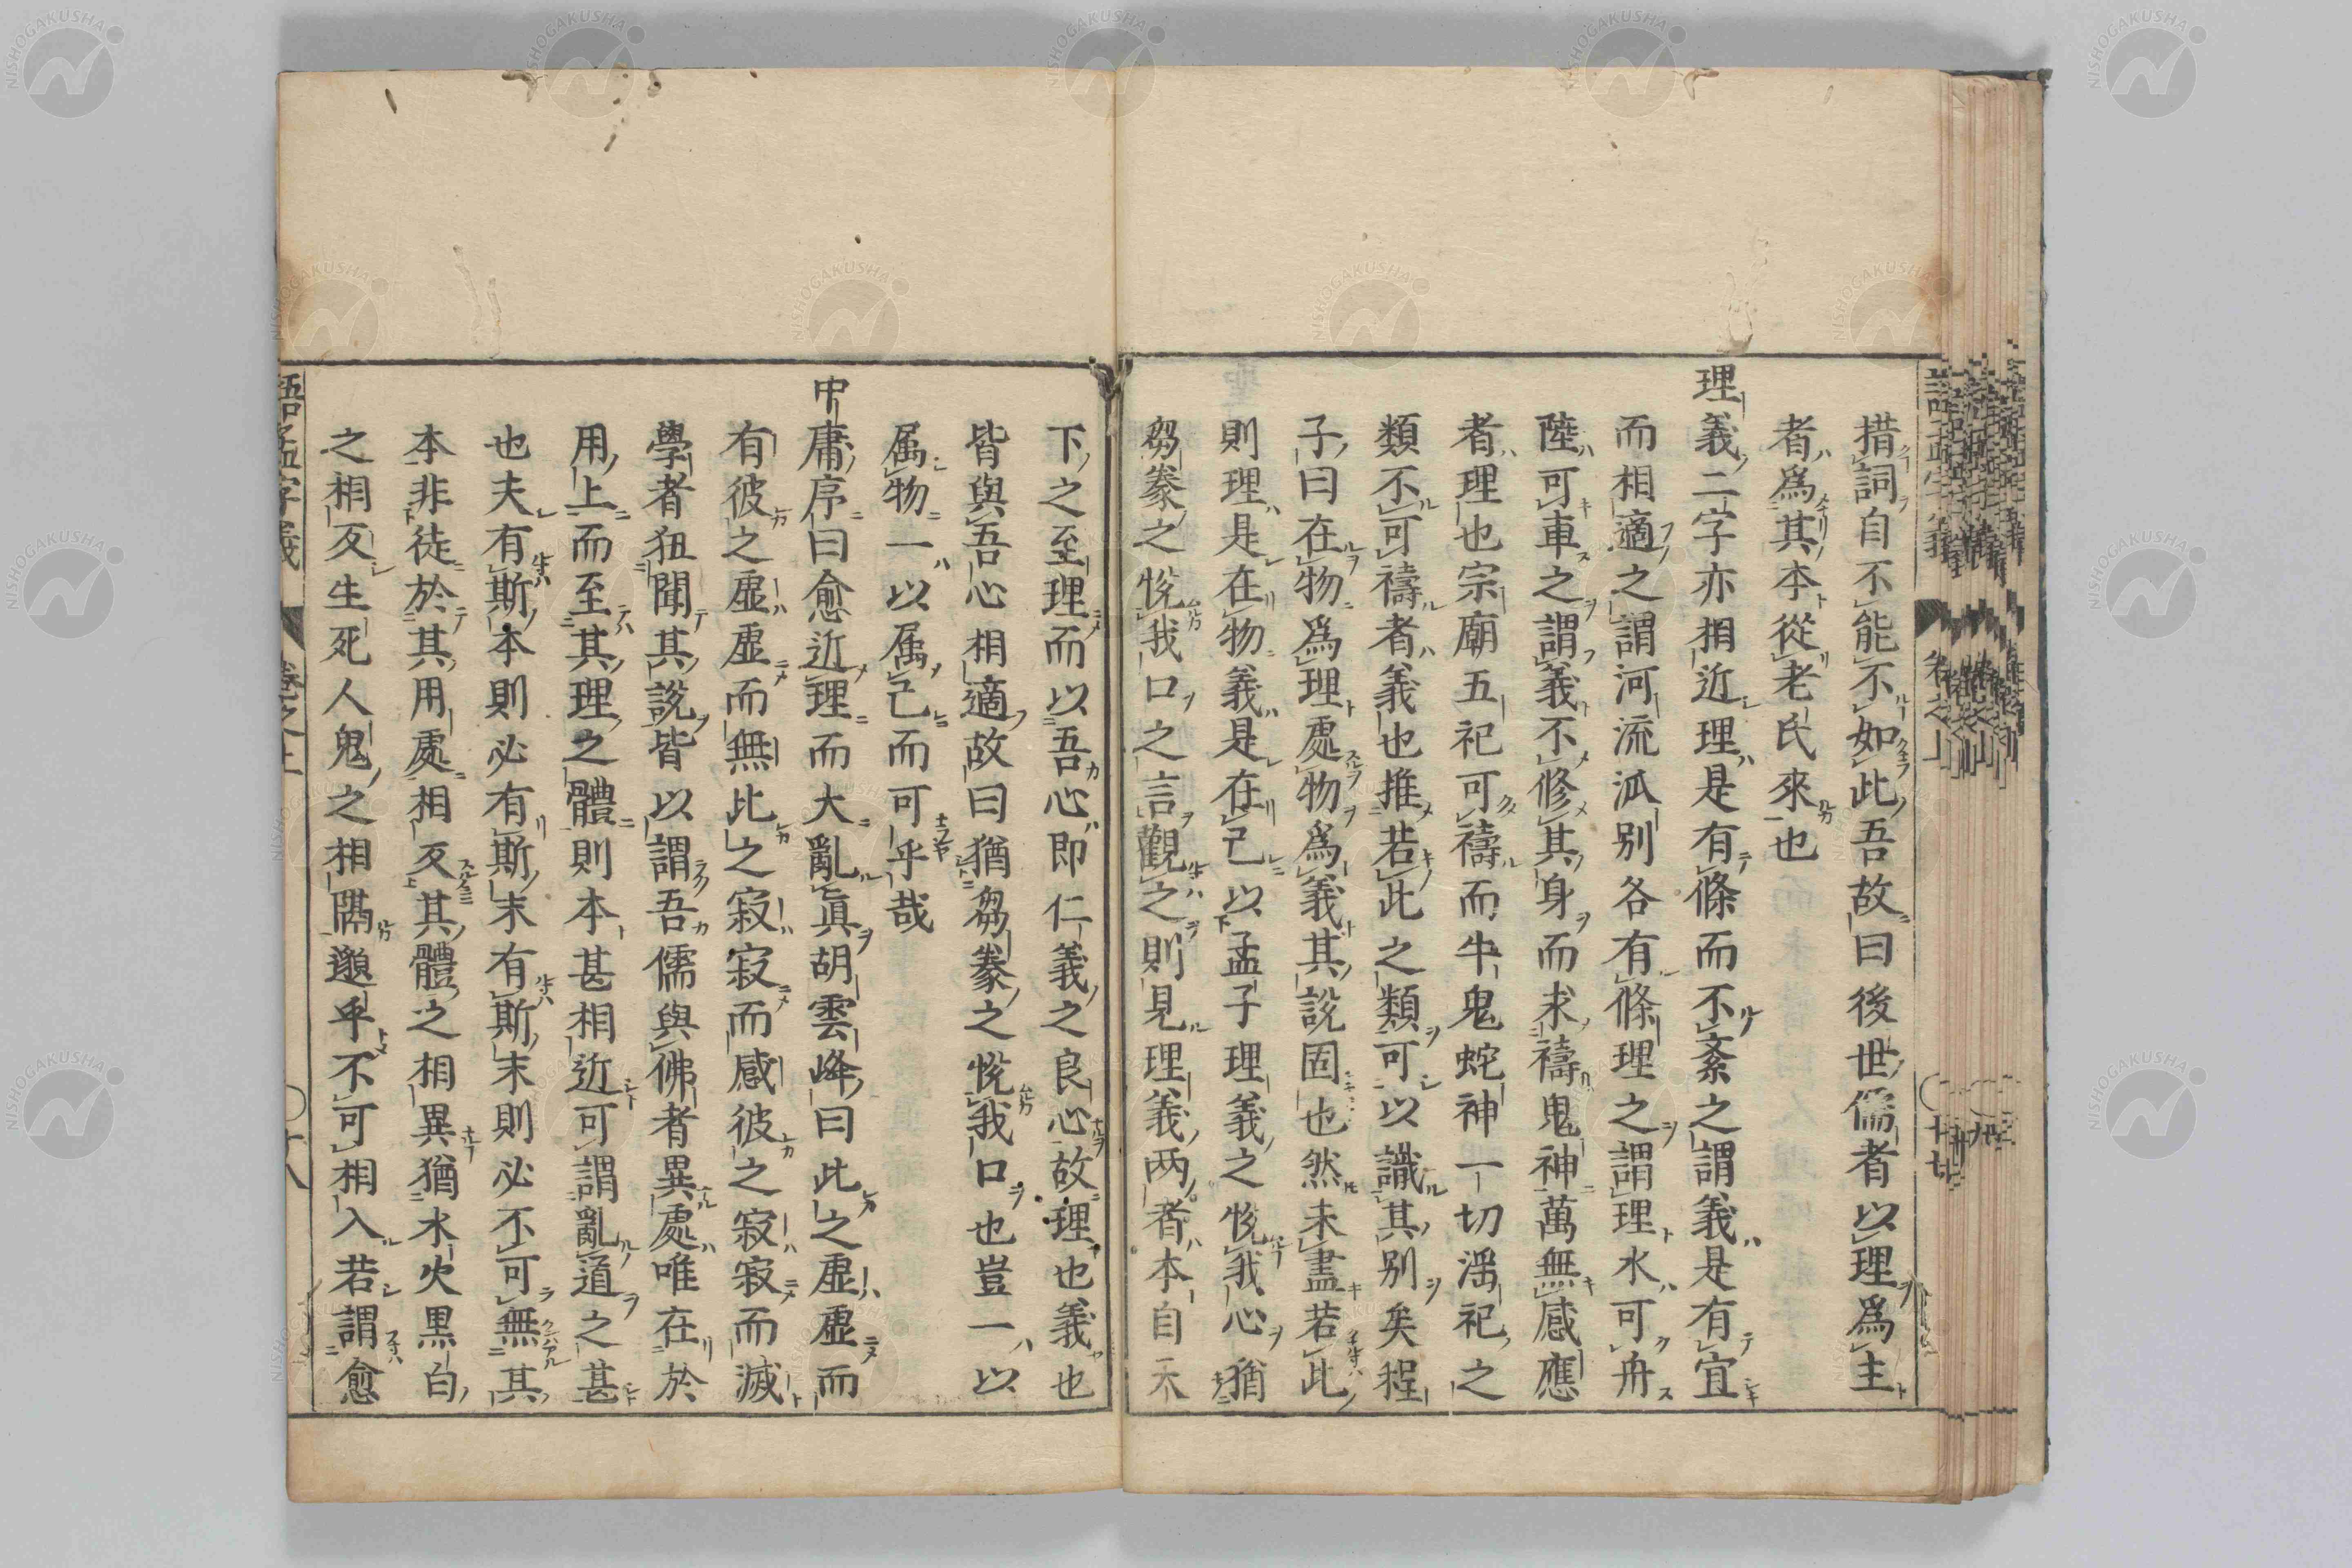 措詞自不能不如此吾故曰後世儒者以理爲主
者爲其本從老氏來也
理義二字亦相近理是有條而不紊之謂義是有宜
而相適之謂河流派別各有條理之謂理水可舟
陸可車之謂義不修其身而求禱鬼神萬無感應
者理也宗廟五祀可禱而牛鬼蛇神一切淫祀之
類不可禱者義也推若此之類可以識其別矣程
子曰在物爲理處物爲義其說固也然未盡若此
則理是在物義是在己以孟子理義之悅我心猶
芻豢之悅我口之言觀之則見理義兩者本自天
下之至理而以吾心即仁義之良心故理也義也
皆與吾心相適故曰猶芻豢之悅我口也豈一以
属物一以属己而可乎哉
中庸序曰愈近理而大亂眞胡雲峰曰此之虛虛而
有彼之虛虛而無此之寂寂而感彼之寂寂而滅
學者狃聞其說皆以謂吾儒與佛者異處唯在於
用上而至其理之體則本甚相近可謂亂道之甚
也夫有斯本則必有斯末有斯末則必不可無其
本非徒於其用處相反其體之相異猶水火黒白
之相反生死人鬼之相隔邈乎不可相入若謂愈
語孟字義 卷之上 十八
NISHOGAKUSHA